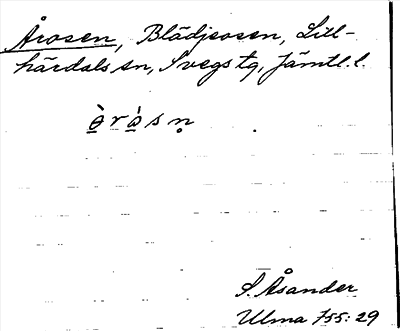 Årosen, Blädjeosen, Lill-
härdals sn, Svegs tg, Jämtl. l.
ə̲̀ r a̲̍ s n̥
S. Åsander
Ulma 755:29